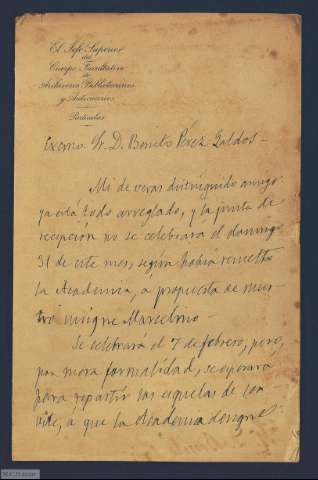 El Jefe Superior
del
Cuerpo Facultativo
de
Archiveros Bibliotecarios
y Anticuarios
Particular
Excmo Sr. D. Benito Pérez Galdos –
Mi de veras distinguido amigo:
ya está todo arreglado, y la junta de
recepción no se celebrará el domingo
31 de este mes, según había resuelto
la Academia, á propuesta de nues
tro insigne Marcelino –
Se celebrará el 7 de febrero, pero,
por mera formalidad, se esperará
para repartir las esquelas de con
vite, á que la Academia designe